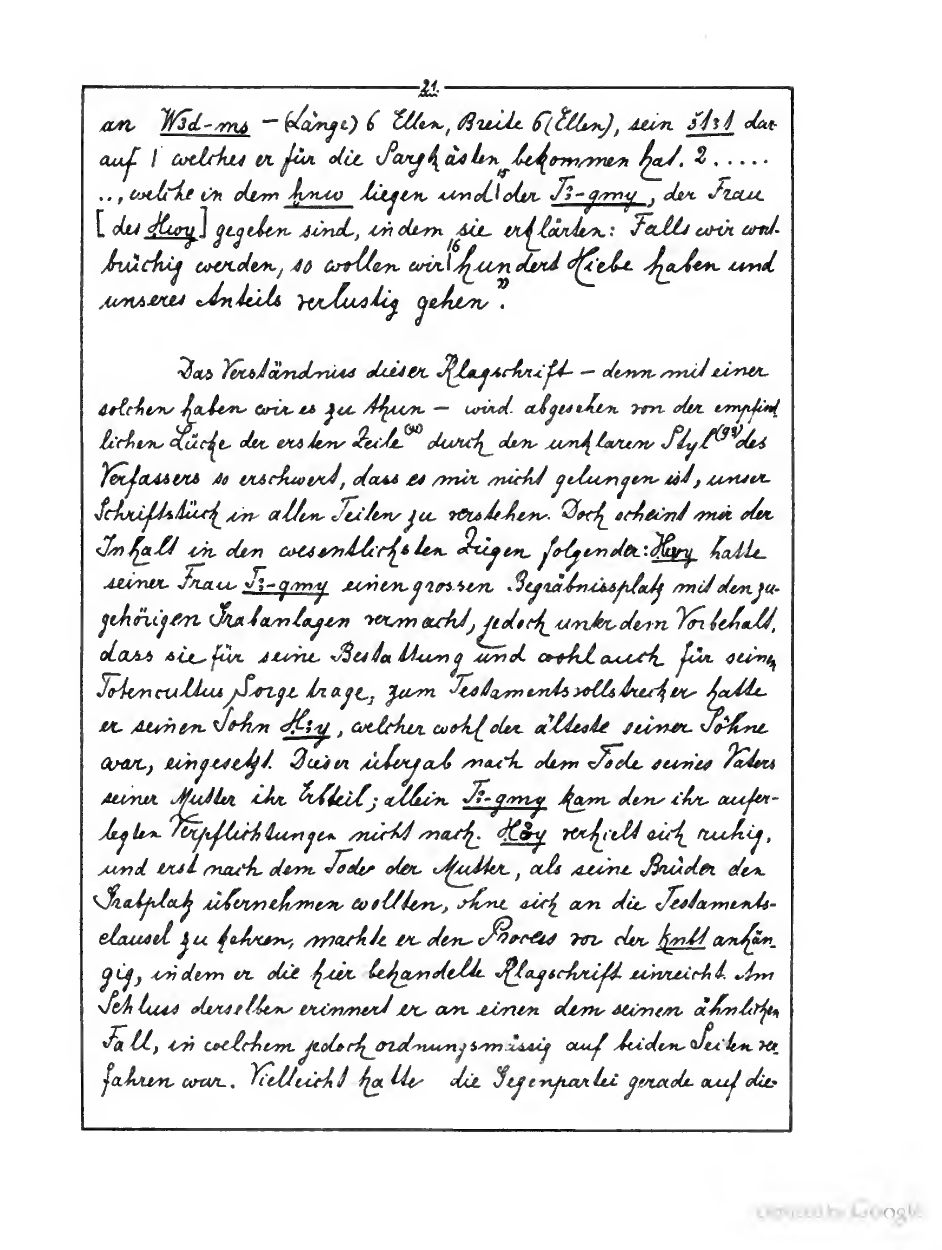 21.
an W3d-ms – (Länge) 6 Ellen, Breite 6 (Ellen), sein š131 dar-
auf | welches er für die Sargkästen bekommen hat. 2 .....
.., welche in dem hnw liegen und |15 der T3-gmy, der Frau
[des Hwy] gegeben sind, indem sie erklärten: Falls wir wort-
brüchig werden, so wollen wir |16 hundert Hiebe haben und
unseres Anteils verlustig gehen".
Das Verständniss dieser Klagschrift – denn mit einer
solchen haben wir es zu thun – wird abgesehen von der empfind
lichen Lücke der ersten Zeile durch den unklaren Styl des
Verfassers so erschwert, dass es mir nicht gelungen ist, unser
Schriftstück in allen Teilen zu verstehen. Doch scheint mir der
Inhalt in den wesentlichsten Zügen folgender: Hwy hatte
seiner Frau T3-gmy einen grossen Begräbnissplatz mit den zu-
gehörigen Grabanlagen vermacht, jedoch unter dem Vorbehalt,
dass sie für seine Bestattung und wohl auch für seinen
Totencultus Sorge trage, zum Testamentsvollstrecker hatte
er seinen Sohn H3y, welcher wohl der älteste seiner Söhne
war, eingesetzt. Dieser übergab nach dem Tode seines Vaters
seiner Mutter ihr Erbteil; allein T3-gmy kam den ihr aufer-
legten Verpflichtungen nicht nach. H3y verhielt sich ruhig,
und erst nach dem Tode der Mutter, als seine Brüder den
Grabplatz übernehmen wollten, ohne sich an die Testaments-
clausel zu kehren, machte er den Process vor der knbt anhän-
gig, indem er die hier behandelte Klagschrift einreicht. Am
Schluss derselben erinnert er an einen dem seinen ähnlichen
Fall, in welchem jedoch ordnungsmässig auf beiden Seiten ver-
fahren war. Vielleicht hatte die Gegenpartei gerade auf die-
Digitized by Google